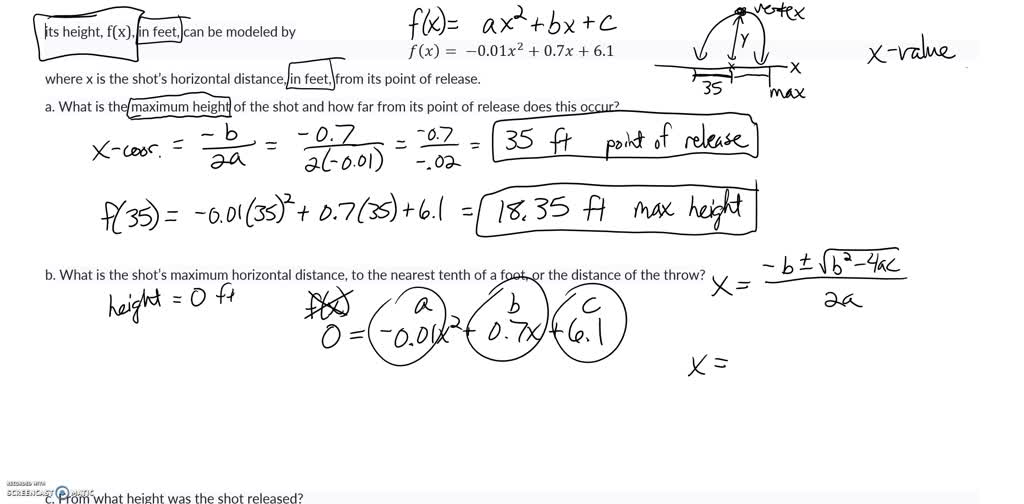 its height, f(x), in feet, can be modeled by
f(x) = ax² + bx + c
f(x) = −0.01x² + 0.7x + 6.1
vertex
y
x
35
max
x-value
where x is the shot's horizontal distance, in feet, from its point of release.
a. What is the maximum height of the shot and how far from its point of release does this occur?
x-coor. = -b/2a = -0.7/2(-0.01) = -0.7/-.02 = 35 ft point of release
f(35) = -0.01(35)² + 0.7(35) + 6.1 = 18.35 ft max height
b. What is the shot's maximum horizontal distance, to the nearest tenth of a foot, or the distance of the throw?
height = 0 ft
f(x)
a b c
0 = -0.01x² + 0.7x + 6.1
x = -b ± √b²-4ac / 2a
x =
RECORDED WITH
SCREENCAST MATIC
c. From what height was the shot released?